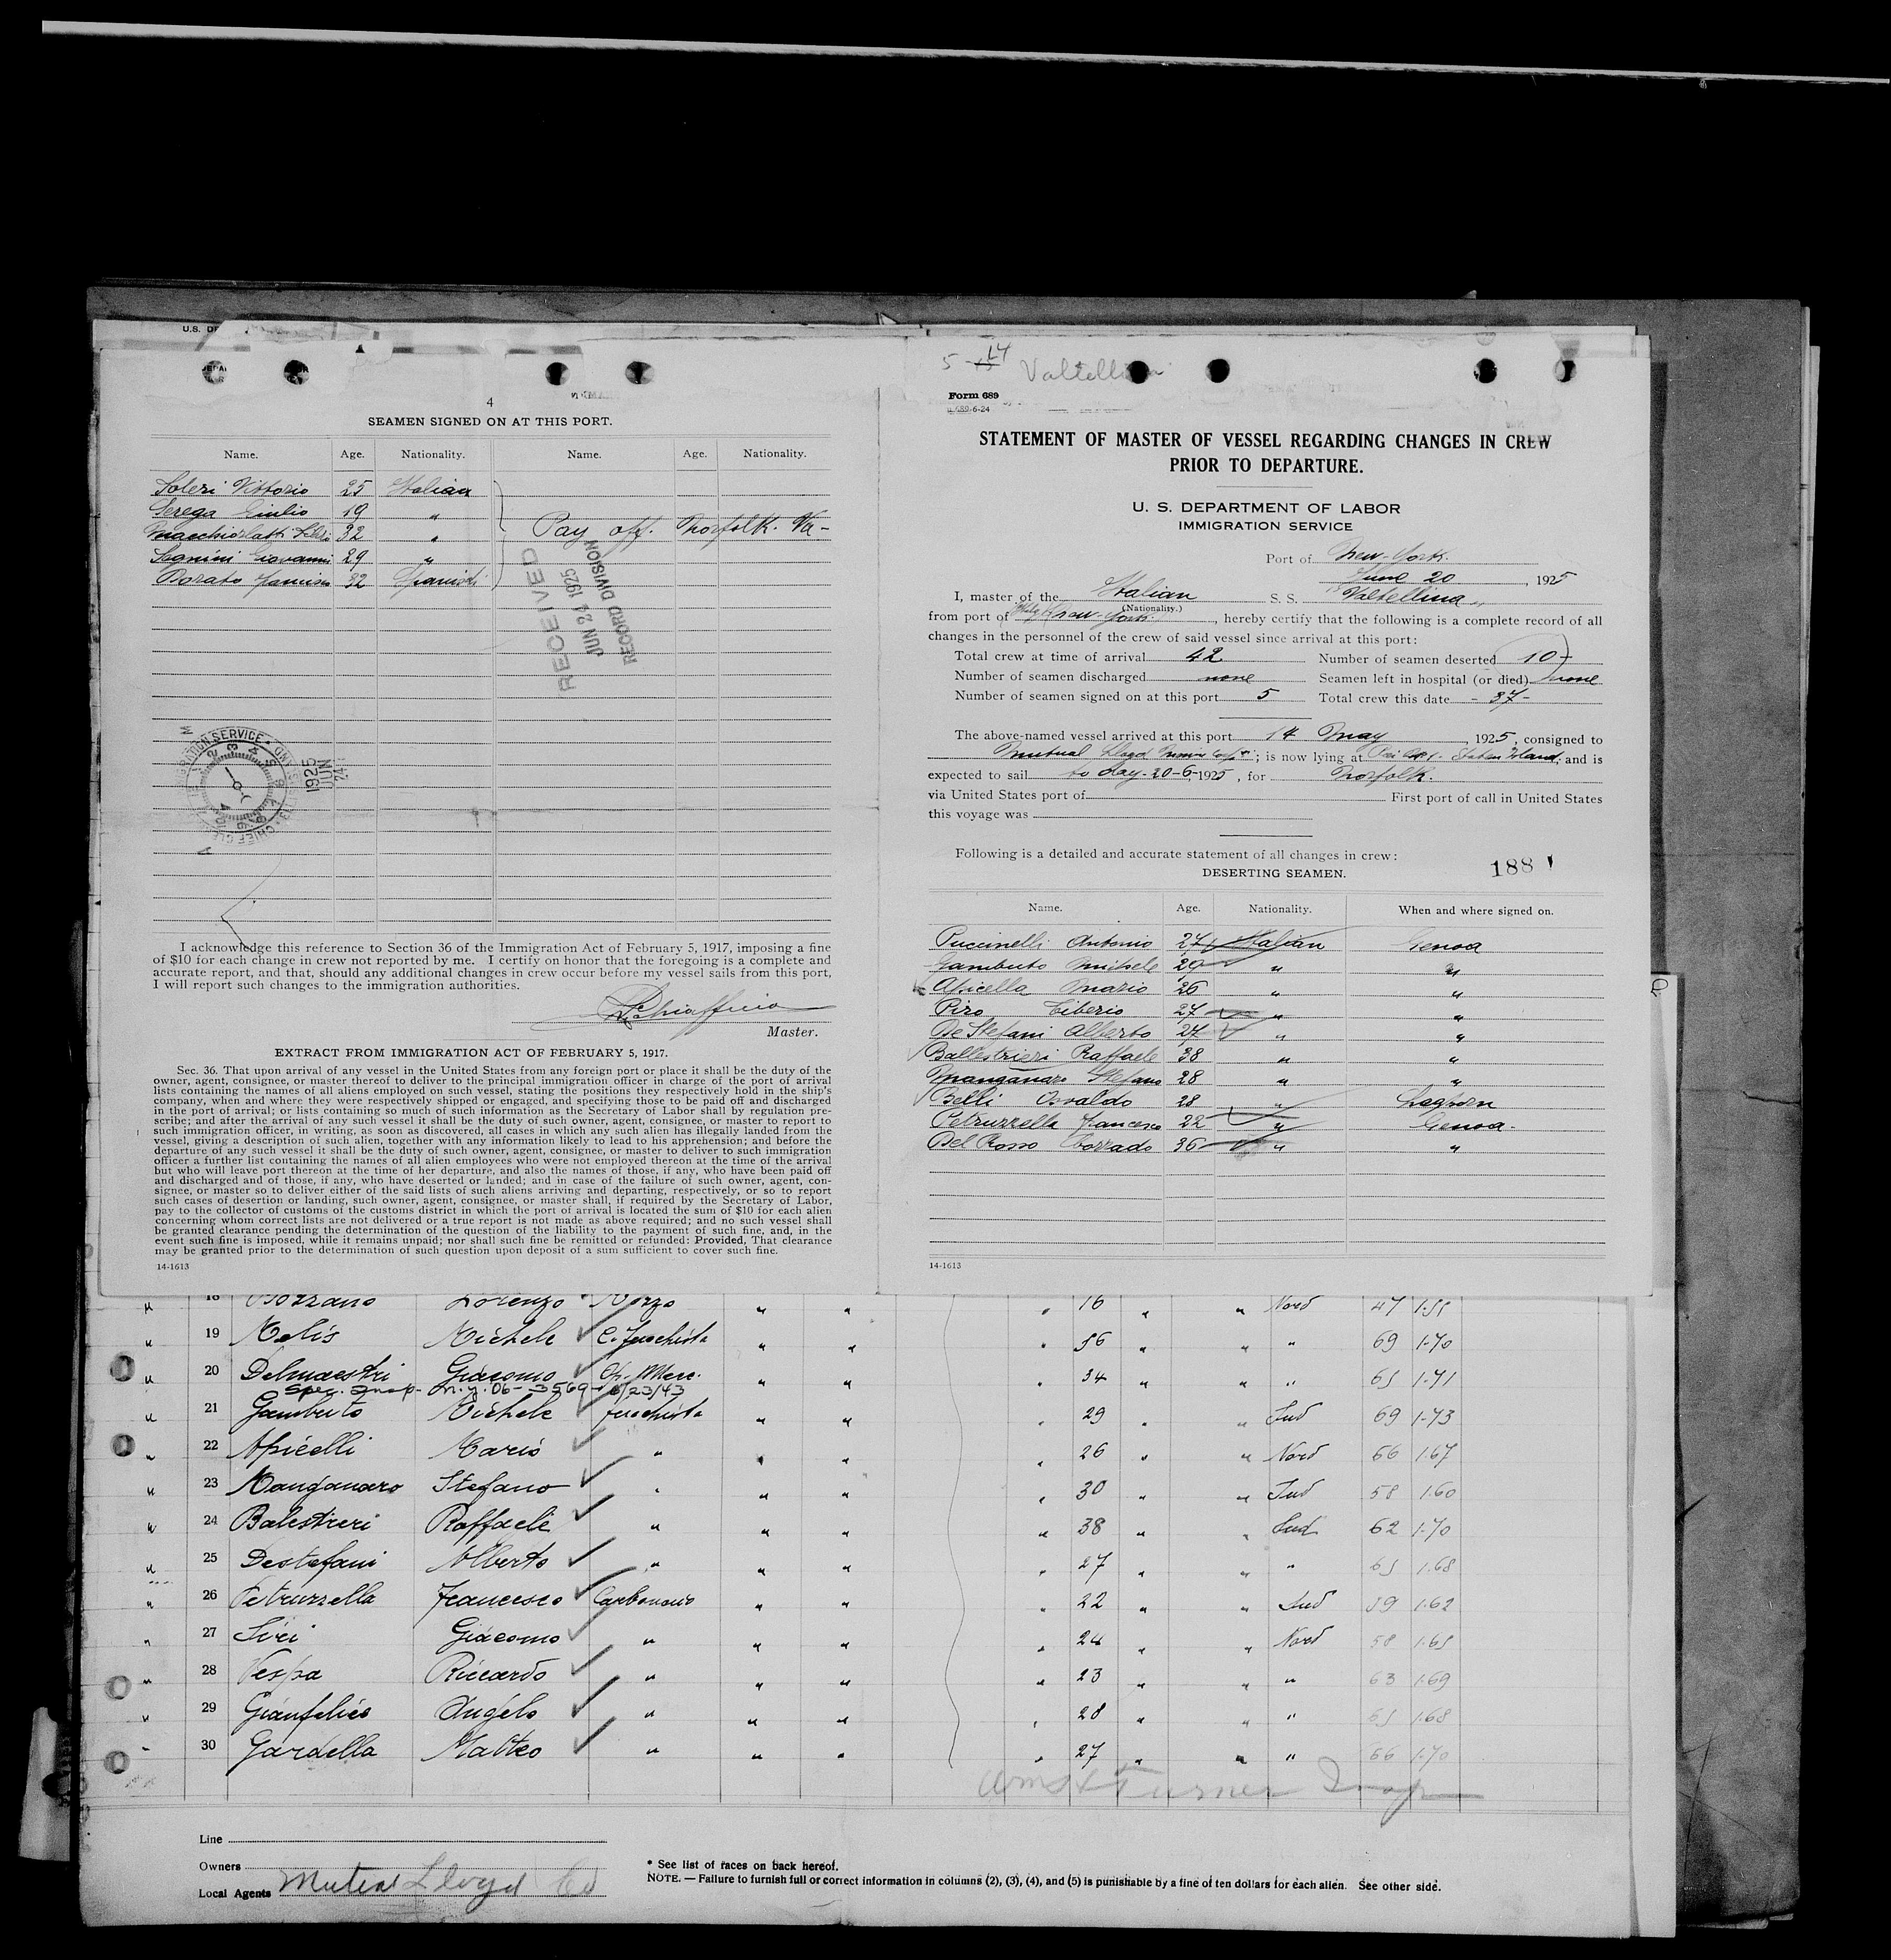 4
SEAMEN SIGNED ON AT THIS PORT.
Name. Age. Nationality. Name. Age. Nationality.
Soleri Vittorio 25 Italian
Serega Giulio 19 "
32 "
Segnini Giovanni 29 "
Borato 32 Spanish
Pay off. Norfolk. Va-
RECEIVED
JUN 24 1925
RECORD DIVISION
1925
JUN
24
I acknowledge this reference to Section 36 of the Immigration Act of February 5, 1917, imposing a fine
of $10 for each change in crew not reported by me. I certify on honor that the foregoing is a complete and
accurate report, and that, should any additional changes in crew occur before my vessel sails from this port,
I will report such changes to the immigration authorities.
Schiaffino
Master.
EXTRACT FROM IMMIGRATION ACT OF FEBRUARY 5, 1917.
Sec. 36. That upon arrival of any vessel in the United States from any foreign port or place it shall be the duty of the
owner, agent, consignee, or master thereof to deliver to the principal immigration officer in charge of the port of arrival
lists containing the names of all aliens employed on such vessel, stating the positions they respectively hold in the ship's
company, when and where they were respectively shipped or engaged, and specifying those to be paid off and discharged
in the port of arrival; or lists containing so much of such information as the Secretary of Labor shall by regulation pre-
scribe; and after the arrival of any such vessel it shall be the duty of such owner, agent, consignee, or master to report to
such immigration officer, in writing, as soon as discovered, all cases in which any such alien has illegally landed from the
vessel, giving a description of such alien, together with any information likely to lead to his apprehension; and before the
departure of any such vessel it shall be the duty of such owner, agent, consignee, or master to deliver to such immigration
officer a further list containing the names of all alien employees who were not employed thereon at the time of the arrival
but who will leave port thereon at the time of her departure, and also the names of those, if any, who have been paid off
and discharged and of those, if any, who have deserted or landed; and in case of the failure of such owner, agent, con-
signee, or master so to deliver either of the said lists of such aliens arriving and departing, respectively, or so to report
such cases of desertion or landing, such owner, agent, consignee, or master shall, if required by the Secretary of Labor,
pay to the collector of customs of the customs district in which the port of arrival is located the sum of $10 for each alien
concerning whom correct lists are not delivered or a true report is not made as above required; and no such vessel shall
be granted clearance pending the determination of the question of the liability to the payment of such fine, and, in the
event such fine is imposed, while it remains unpaid; nor shall such fine be remitted or refunded: Provided, That clearance
may be granted prior to the determination of such question upon deposit of a sum sufficient to cover such fine.
14-1613
5-14 Valtellina
Form 689
STATEMENT OF MASTER OF VESSEL REGARDING CHANGES IN CREW
PRIOR TO DEPARTURE.
U. S. DEPARTMENT OF LABOR
IMMIGRATION SERVICE
Port of New-York.
June 20, 1925
I, master of the Italian S. S. "Valtellina"
(Nationality.)
from port of New-York, hereby certify that the following is a complete record of all
changes in the personnel of the crew of said vessel since arrival at this port:
Total crew at time of arrival 42 Number of seamen deserted 10-
Number of seamen discharged none Seamen left in hospital (or died) none
Number of seamen signed on at this port 5 Total crew this date - 37-
The above-named vessel arrived at this port 14 May, 1925, consigned to
Mutual Lloyd; is now lying at Staten Island; and is
expected to sail to day-20-6-1925, for Norfolk.
via United States port of First port of call in United States
this voyage was
Following is a detailed and accurate statement of all changes in crew:
DESERTING SEAMEN. 188
Name. Age. Nationality. When and where signed on.
Puccinelli Antonio 27 Italian Genoa
Gamberto Michele 29 " "
Apicella Mario 26 " "
Piro Tiberio 27 " "
De Stefani Alberto 27 " "
Ballestrieri Raffaele 38 " "
Manganaro Stefano 28 " "
Belli Osvaldo 28 " Leghorn
Petruzzella Francesco 22 " Genoa-
Del Rosso Corrado 36 " "
14-1613
18 Bozzano Lorenzo Mozzo " " " 16 " " Nord 47 1.55
19 Melis Michele C. Fuochista " " " 56 " " " 69 1.70
20 Delmaestri Giacomo Op. Mecc. " " " 34 " " " 65 1.71
Spec. Insp. N.Y. 06-3569- 6/23/43
21 Gamberto Michele Fuochista " " " 29 " " Sud 69 1.73
22 Apicelli Mario " " " " 26 " " Nord 66 1.67
23 Manganaro Stefano " " " " 30 " " Sud 58 1.60
24 Balestreri Raffaele " " " " 38 " " Sud 62 1.70
25 Destefani Alberto " " " " 27 " " " 65 1.68
26 Petruzzella Francesco Carbonaio " " " 22 " " Sud 59 1.62
27 Sivei Giacomo " " " " 24 " " Nord 58 1.65
28 Vespa Riccardo " " " " 23 " " " 63 1.69
29 Gianfelice Angelo " " " " 28 " " " 65 1.68
30 Gardella Matteo " " " " 27 " " " 66 1.70
Turner Insp
Line
Owners
Local Agents Mutual Lloyd Co
* See list of races on back hereof.
NOTE. — Failure to furnish full or correct information in columns (2), (3), (4), and (5) is punishable by a fine of ten dollars for each alien. See other side.